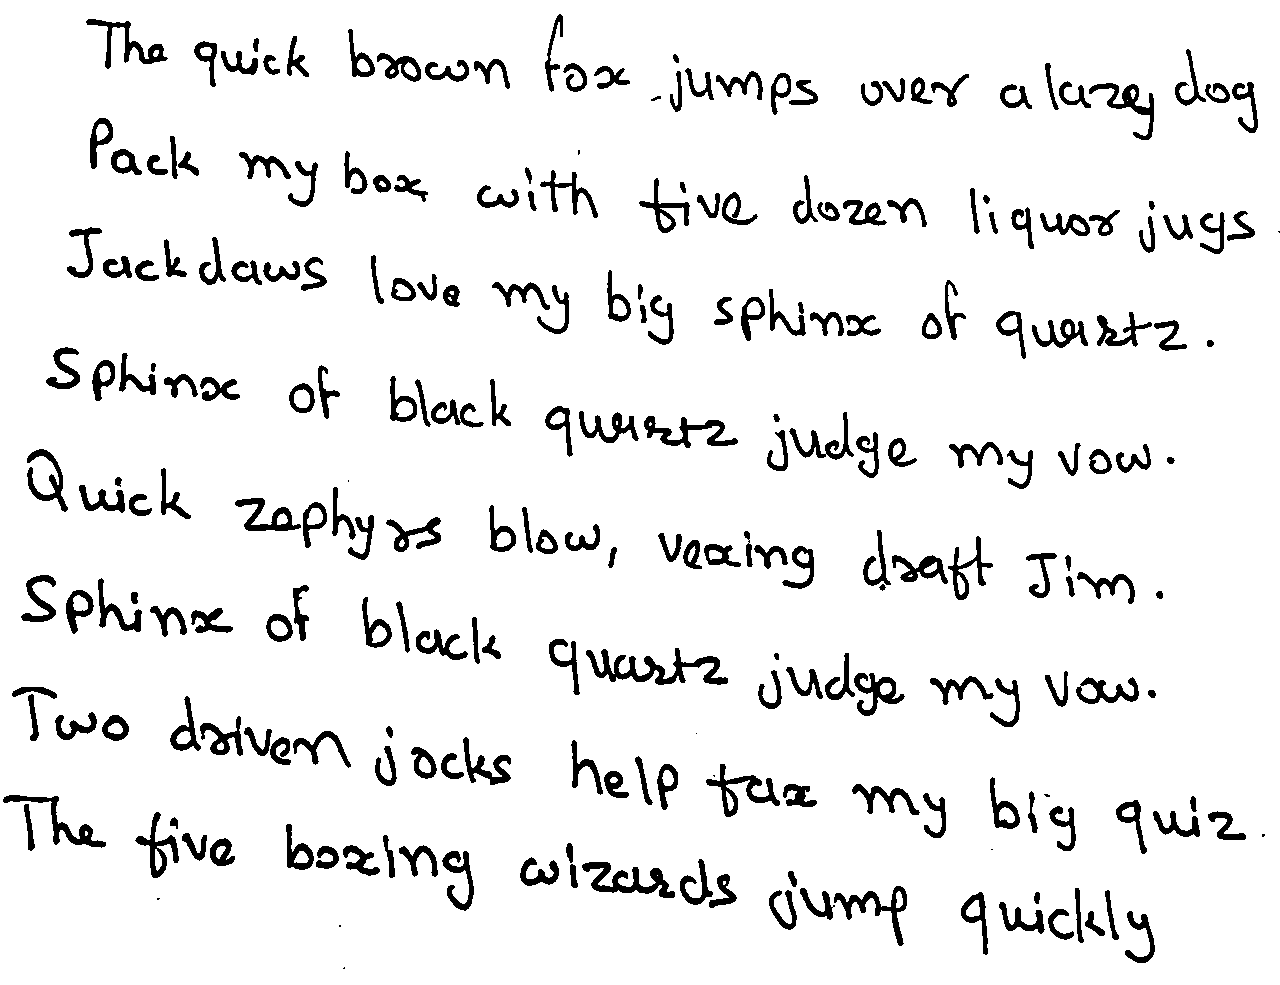 The quick brown fox jumps over a lazy dog
Pack my box with five dozen liquor jugs
Jackdaws love my big sphinx of quartz.
Sphinx of black quartz judge my vow.
Quick zephyrs blow, vexing draft Jim.
Sphinx of black quartz judge my vow.
Two driven jocks help fax my big quiz
The five boxing wizards jump quickly